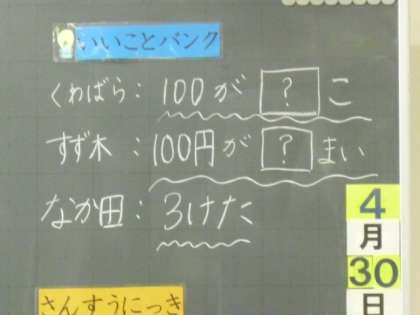 いいことバンク
くわばら：100が ? こ
すず木：100円が ? まい
なか田：3けた
4
月
30
日
さんすうにっき